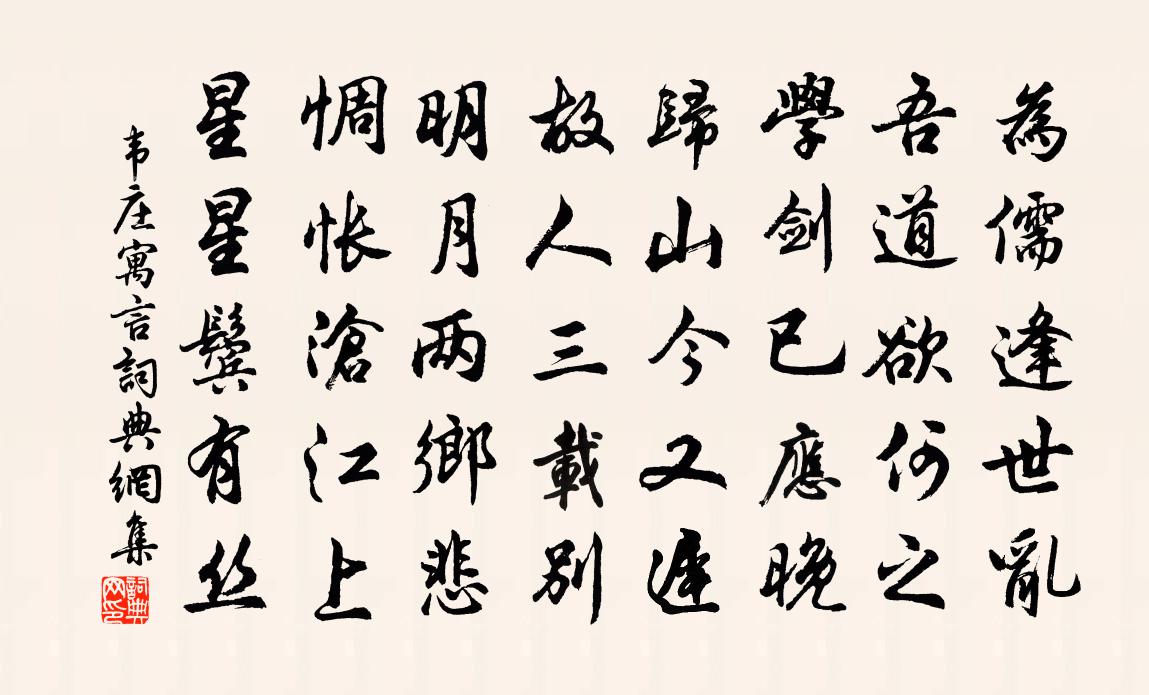 為儒逢世亂
吾道欲何之
學劍已應晚
歸山今又遲
故人三載別
明月两鄉悲
惆悵滄江上
星星鬢有丝
韦庄寓言詞典網集
詞典网印